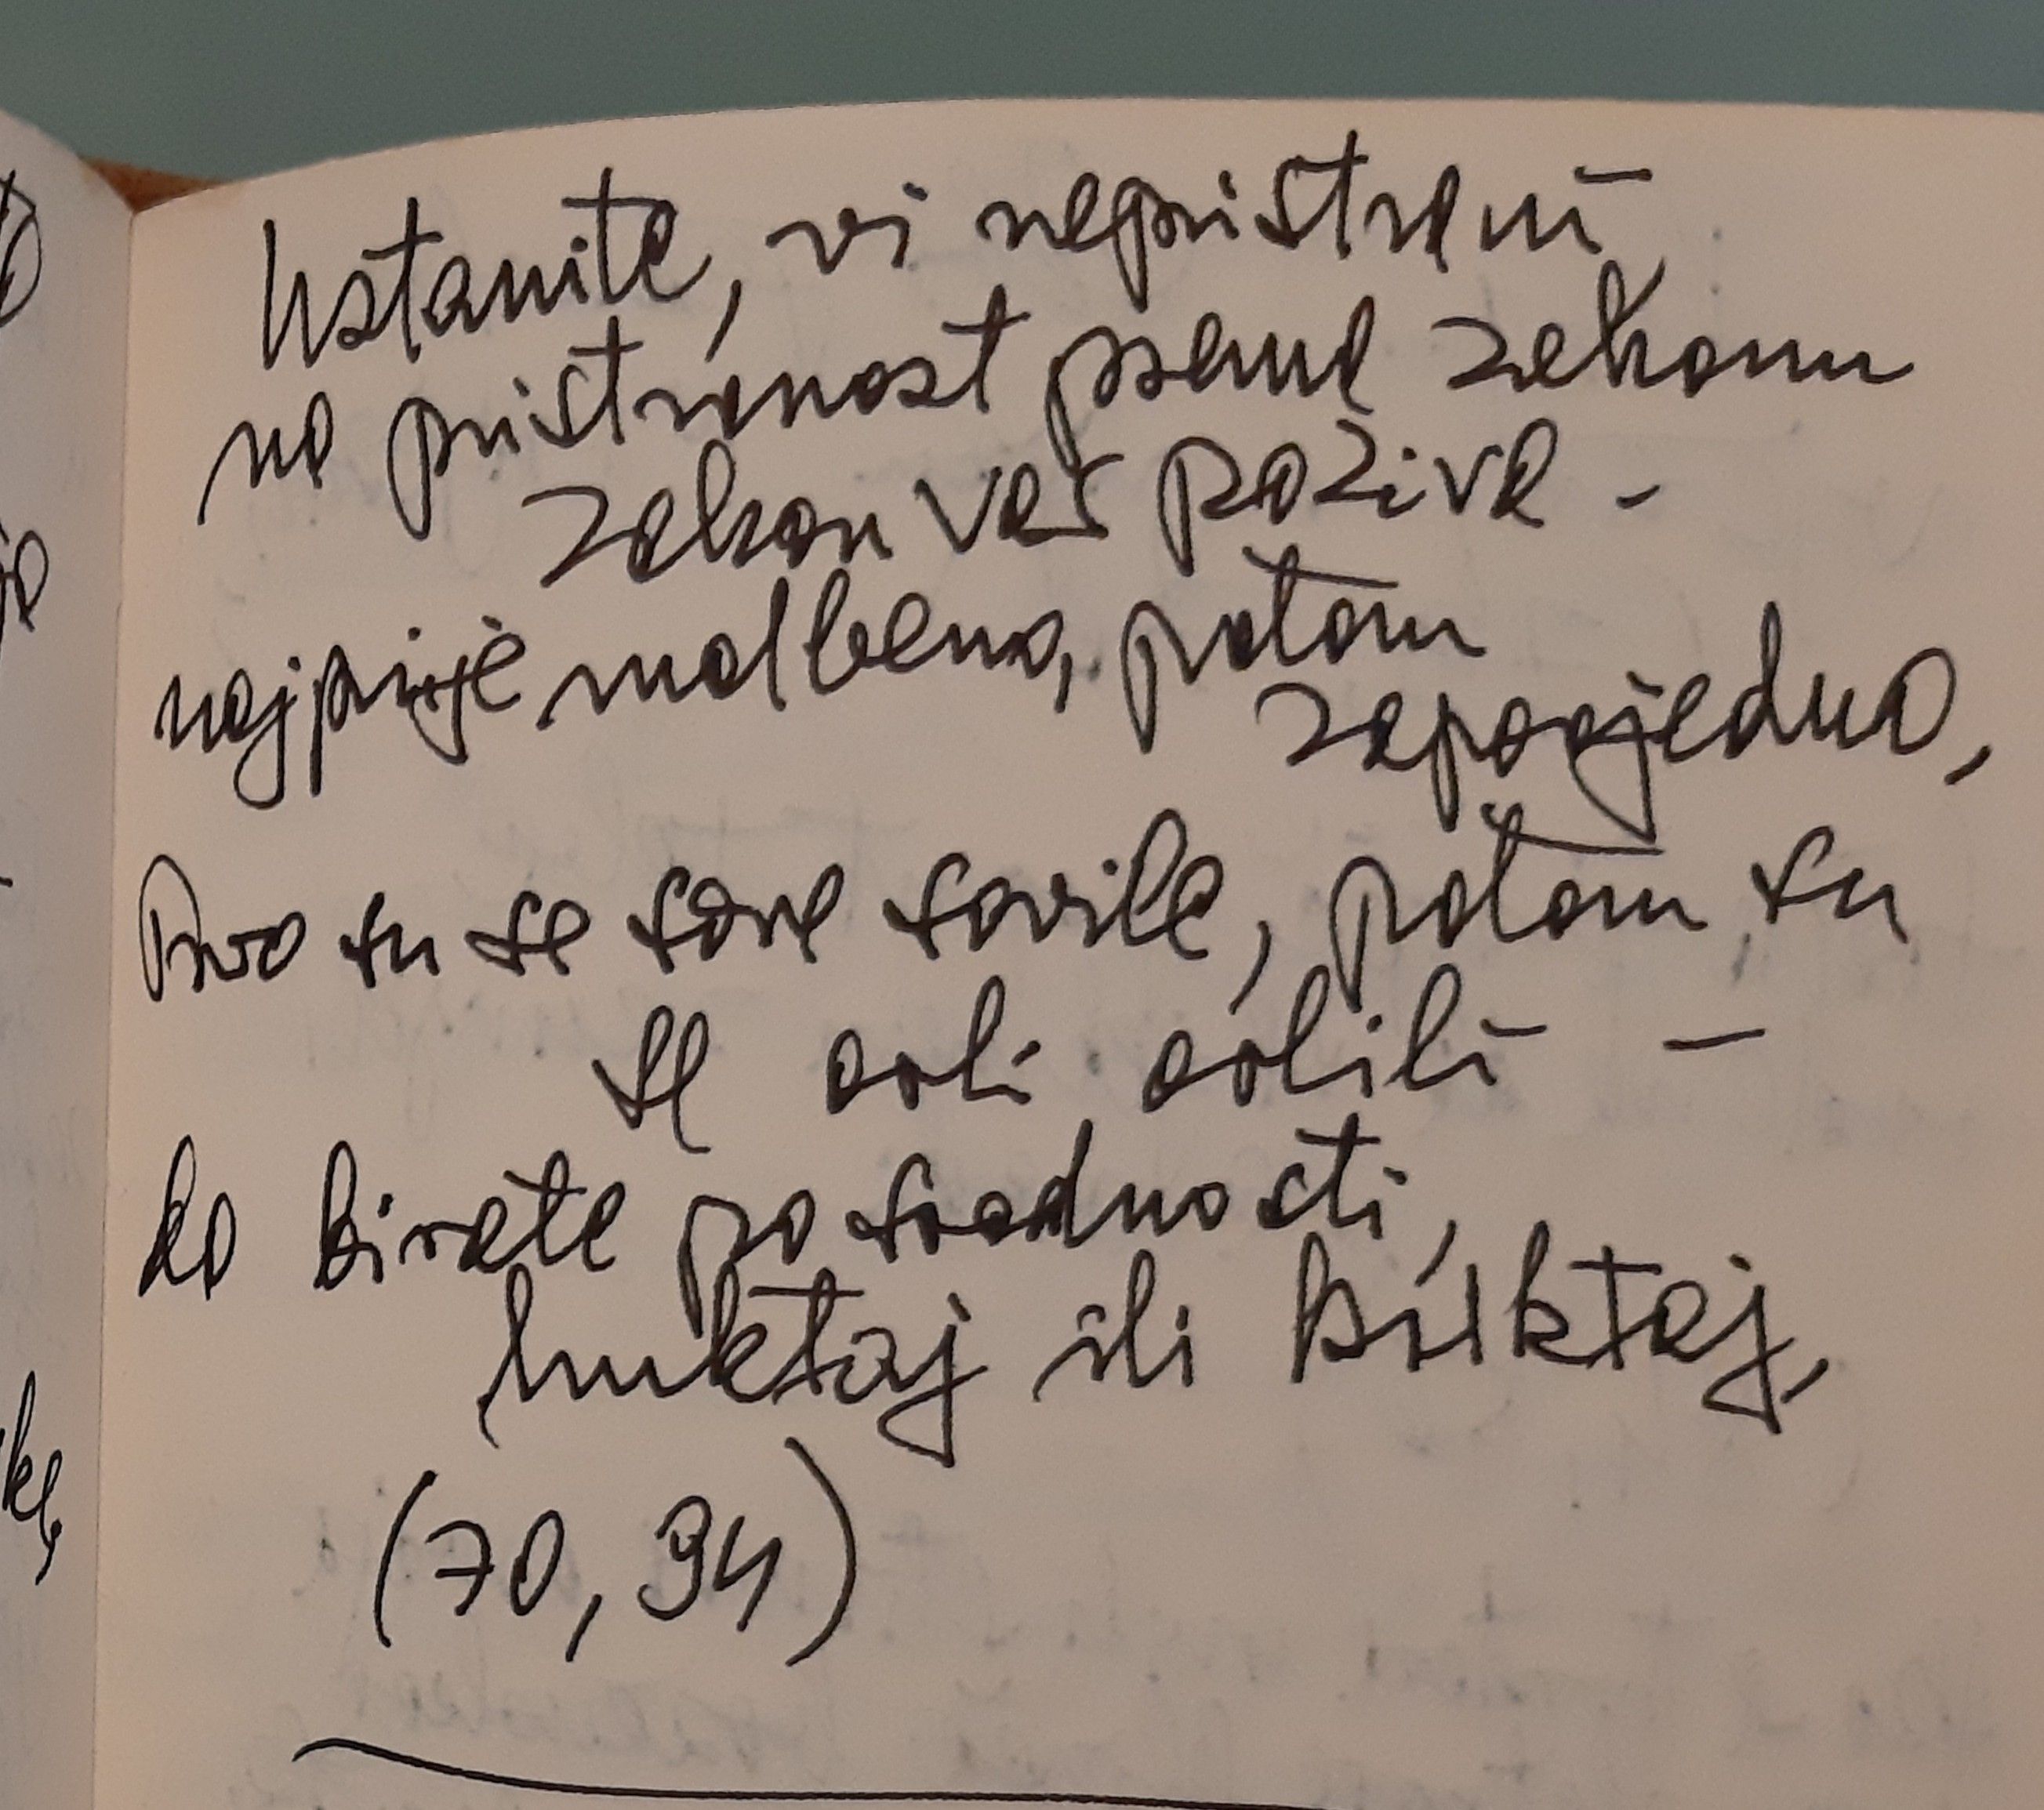 Ustanite, vi nepristrani
na pristranost prema zakonu
zakon vas poziva -
najprije molbeno, potom
zapovjedno,
Prvo su se sove sovile, potom su
se orli orlili -
ko birate po srodnosti,
huktaj ili bukktaj,
(70, 94)